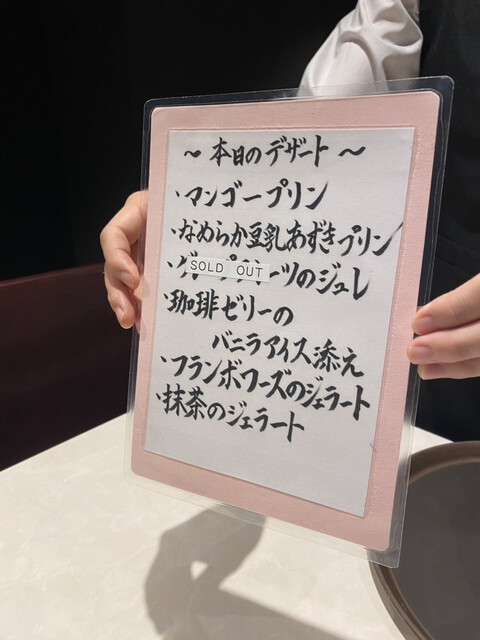 ～ 本日のデザート ～
・マンゴープリン
・なめらか豆乳あずきプリン
・グ SOLD OUT ーツのジュレ
・珈琲ゼリーの
バニラアイス添え
・フランボワーズのジェラート
・抹茶のジェラート